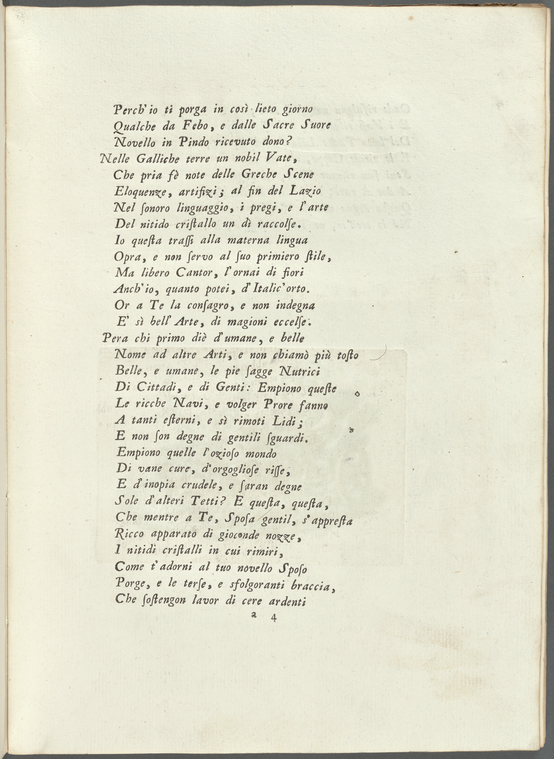 Perch'io ti porga in così lieto giorno
Qualche da Febo, e dalle Sacre Suore
Novello in Pindo ricevuto dono?
Nelle Galliche terre un nobil Vate,
Che pria fè note delle Greche Scene
Eloquenze, artifizj; al fin del Lazio
Nel ſonoro linguaggio, i pregi, e l'arte
Del nitido criſtallo un dì raccolſe.
Io queſta traſſi alla materna lingua
Opra, e non ſervo al ſuo primiero ſtile,
Ma libero Cantor, l'ornai di fiori
Anch'io, quanto potei, d'Italic'orto.
Or a Te la conſagro, e non indegna
E' sì bell'Arte, di magioni eccelſe.
Pera chi primo diè d'umane, e belle
Nome ad altre Arti, e non chiamò più toſto
Belle, e umane, le pie ſagge Nutrici
Di Cittadi, e di Genti: Empiono queſte
Le ricche Navi, e volger Prore fanno
A tanti eſterni, e sì rimoti Lidi;
E non ſon degne di gentili ſguardi.
Empiono quelle l'ozioſo mondo
Di vane cure, d'orgoglioſe riſſe,
E d'inopia crudele, e ſaran degne
Sole d'alteri Tetti? E queſta, queſta,
Che mentre a Te, Spoſa gentil, s'appreſta
Ricco apparato di gioconde nozze,
I nitidi criſtalli in cui rimiri,
Come t'adorni al tuo novello Spoſo
Porge, e le terſe, e sfolgoranti braccia,
Che ſoſtengon lavor di cere ardenti
2 4